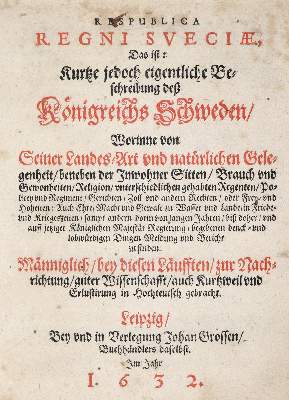 RESPUBLICA
REGNI SVECIÆ,
Das ist:
Kurtze jedoch eigentliche Be-
schreibung deß
Königreichs Schweden/
Worinne von
Seiner Landes-Art vnd natürlichen Gele-
genheit/ beneben der Inwohner Sitten/ Brauch vnd
Gewonheiten/ Religion/ vnterschiedlichen gehabten Regenten/ Po-
licey vnd Regiment/ Gerichten/ Zoll vnd andern Rechten/ oder Frey- vnd
Hoheiten: Auch Ehre/ Macht vnd Gewalt zu Wasser vnd Lande in Friede-
vnd Kriegszeiten/ sampt andern von langen Jahren/ biß daher/ vnd
auff jetziger Königlichen Majestät Regierung/ begebenen denck- vnd
lobwürdigen Dingen Meldung vnd Bericht
zu finden.
Männiglich/ bey diesen Läufften/ zur Nach-
richtung/ guter Wissenschafft/ auch Kurtzweil vnd
Erlustirung in Hochteutsch gebracht.
Leipzig/
Bey vnd in Verlegung Johan Grossen/
Buchhändlers daselbst.
Im Jahr
1. 6 3 2.